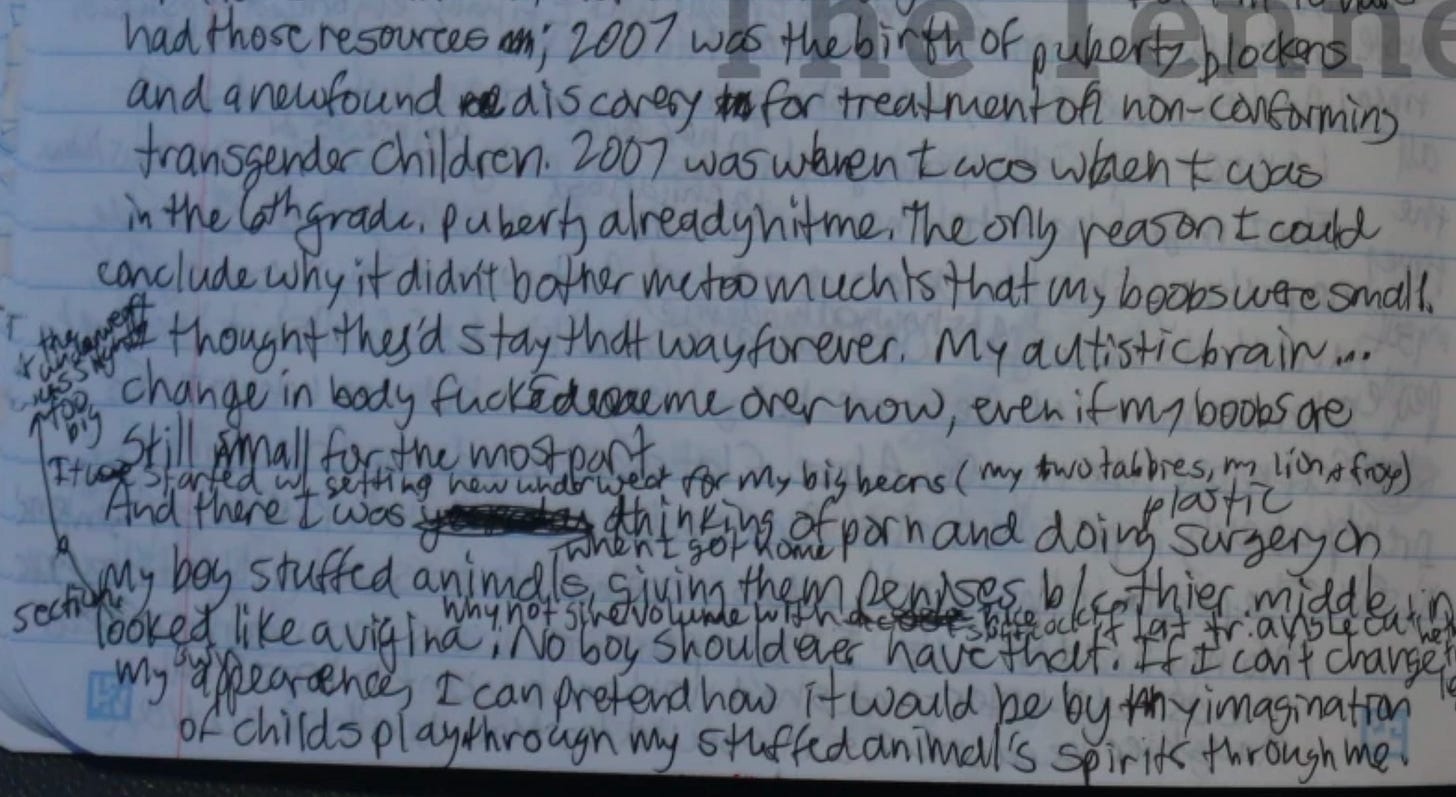 The Tenne
had those resources; 2007 was the birth of puberty blockers
and a newfound discovery for treatment of non-conforming
transgender children. 2007 was when I was when I was
in the 6th grade. puberty already hit me. The only reason I could
conclude why it didn't bother me too much is that my boobs were small.
I thought they'd stay that way forever. My autistic brain...
change in body fucked me over now, even if my boobs are
Still small for the most part
It started w/ getting new underwear for my big bears (my two tabbies, my lion, + frog)
And there I was thinking of porn and doing plastic surgery on
when I got home
my boy stuffed animals, giving them penises b/c thier middle
why not give volume with
looked like a vigina. No boy should ever have that. If I can't change
my appearance, I can pretend how it would be by my imagination
of childs play through my stuffed animal's spirits through me.
the
underwear
was
too
big